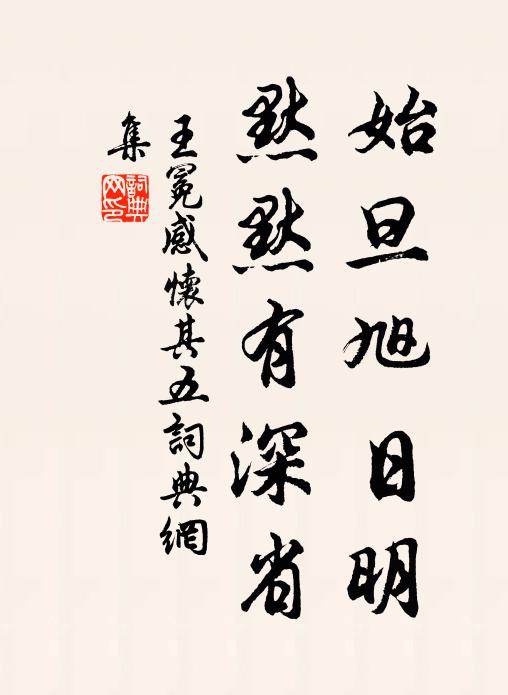 始旦旭日明
默默有深省
王冕感懷其五詞典網
集
詞典
網印